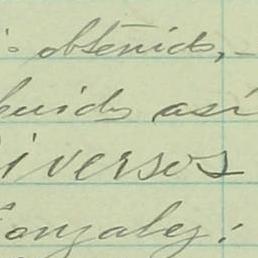 obtenido,-
buido así
iversos
Gonzalez: